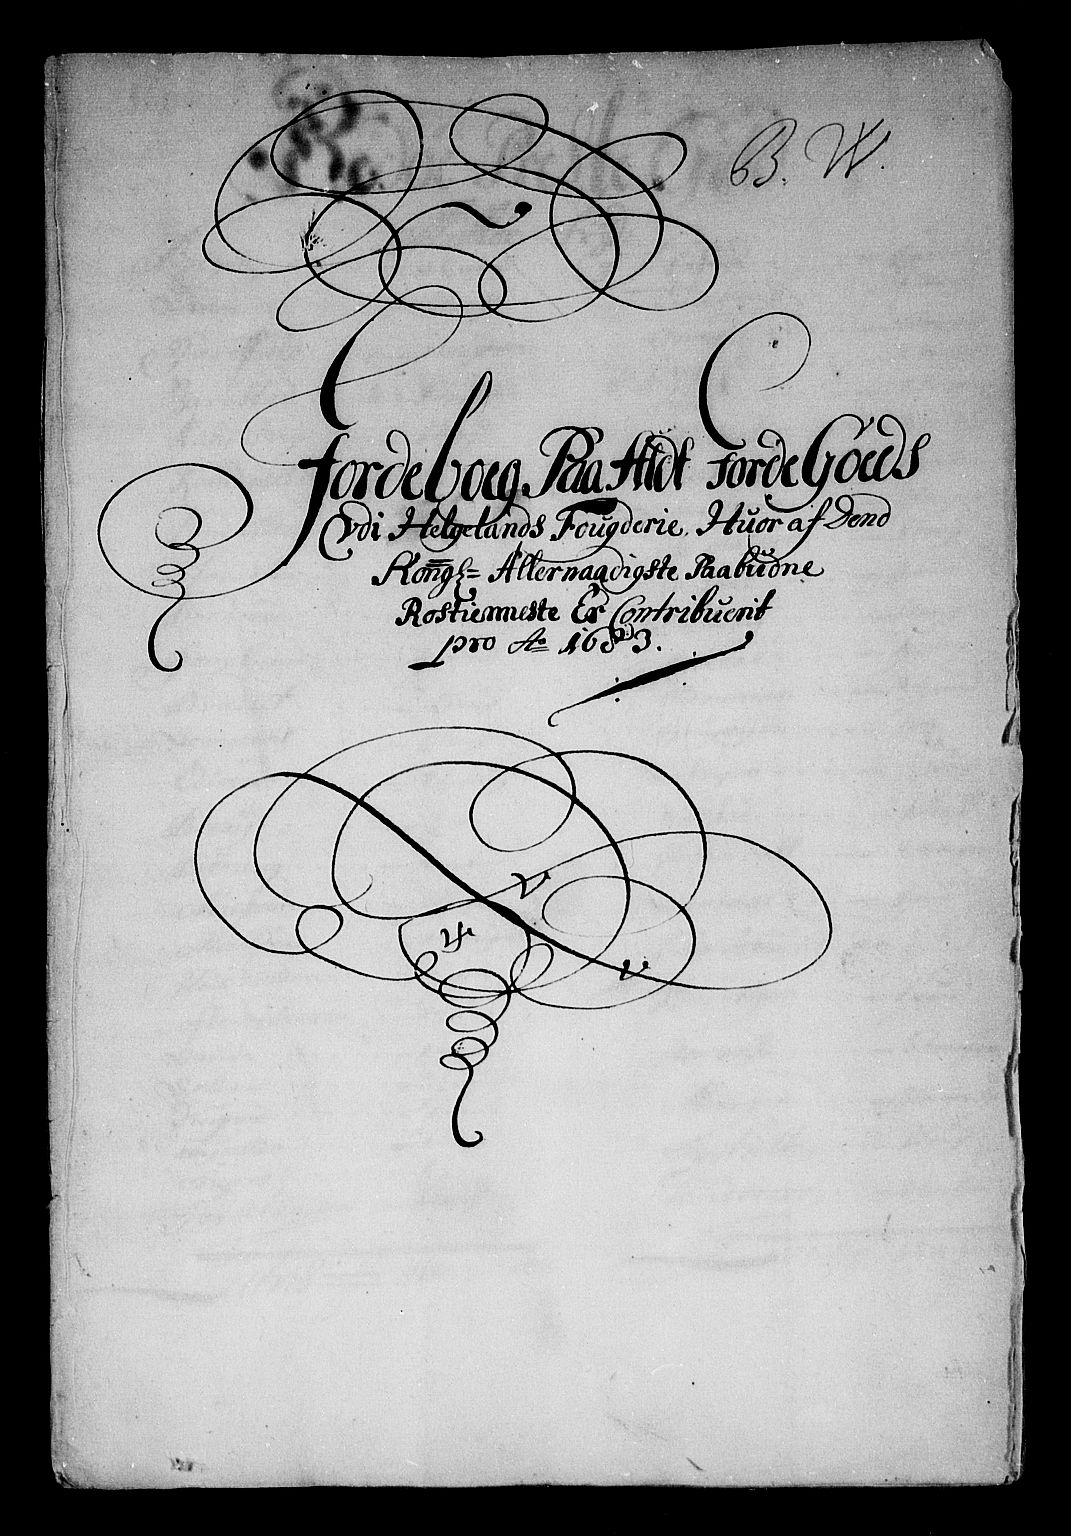 B. W.
Jordeboeg Paa Alldt JordeGoeds
Vdi Helgelands Fougderie, Huor af Dend
Kongl= Allernaadigste Paabudne
Rostienneste Er Contribuerit
pro Ao 1683.